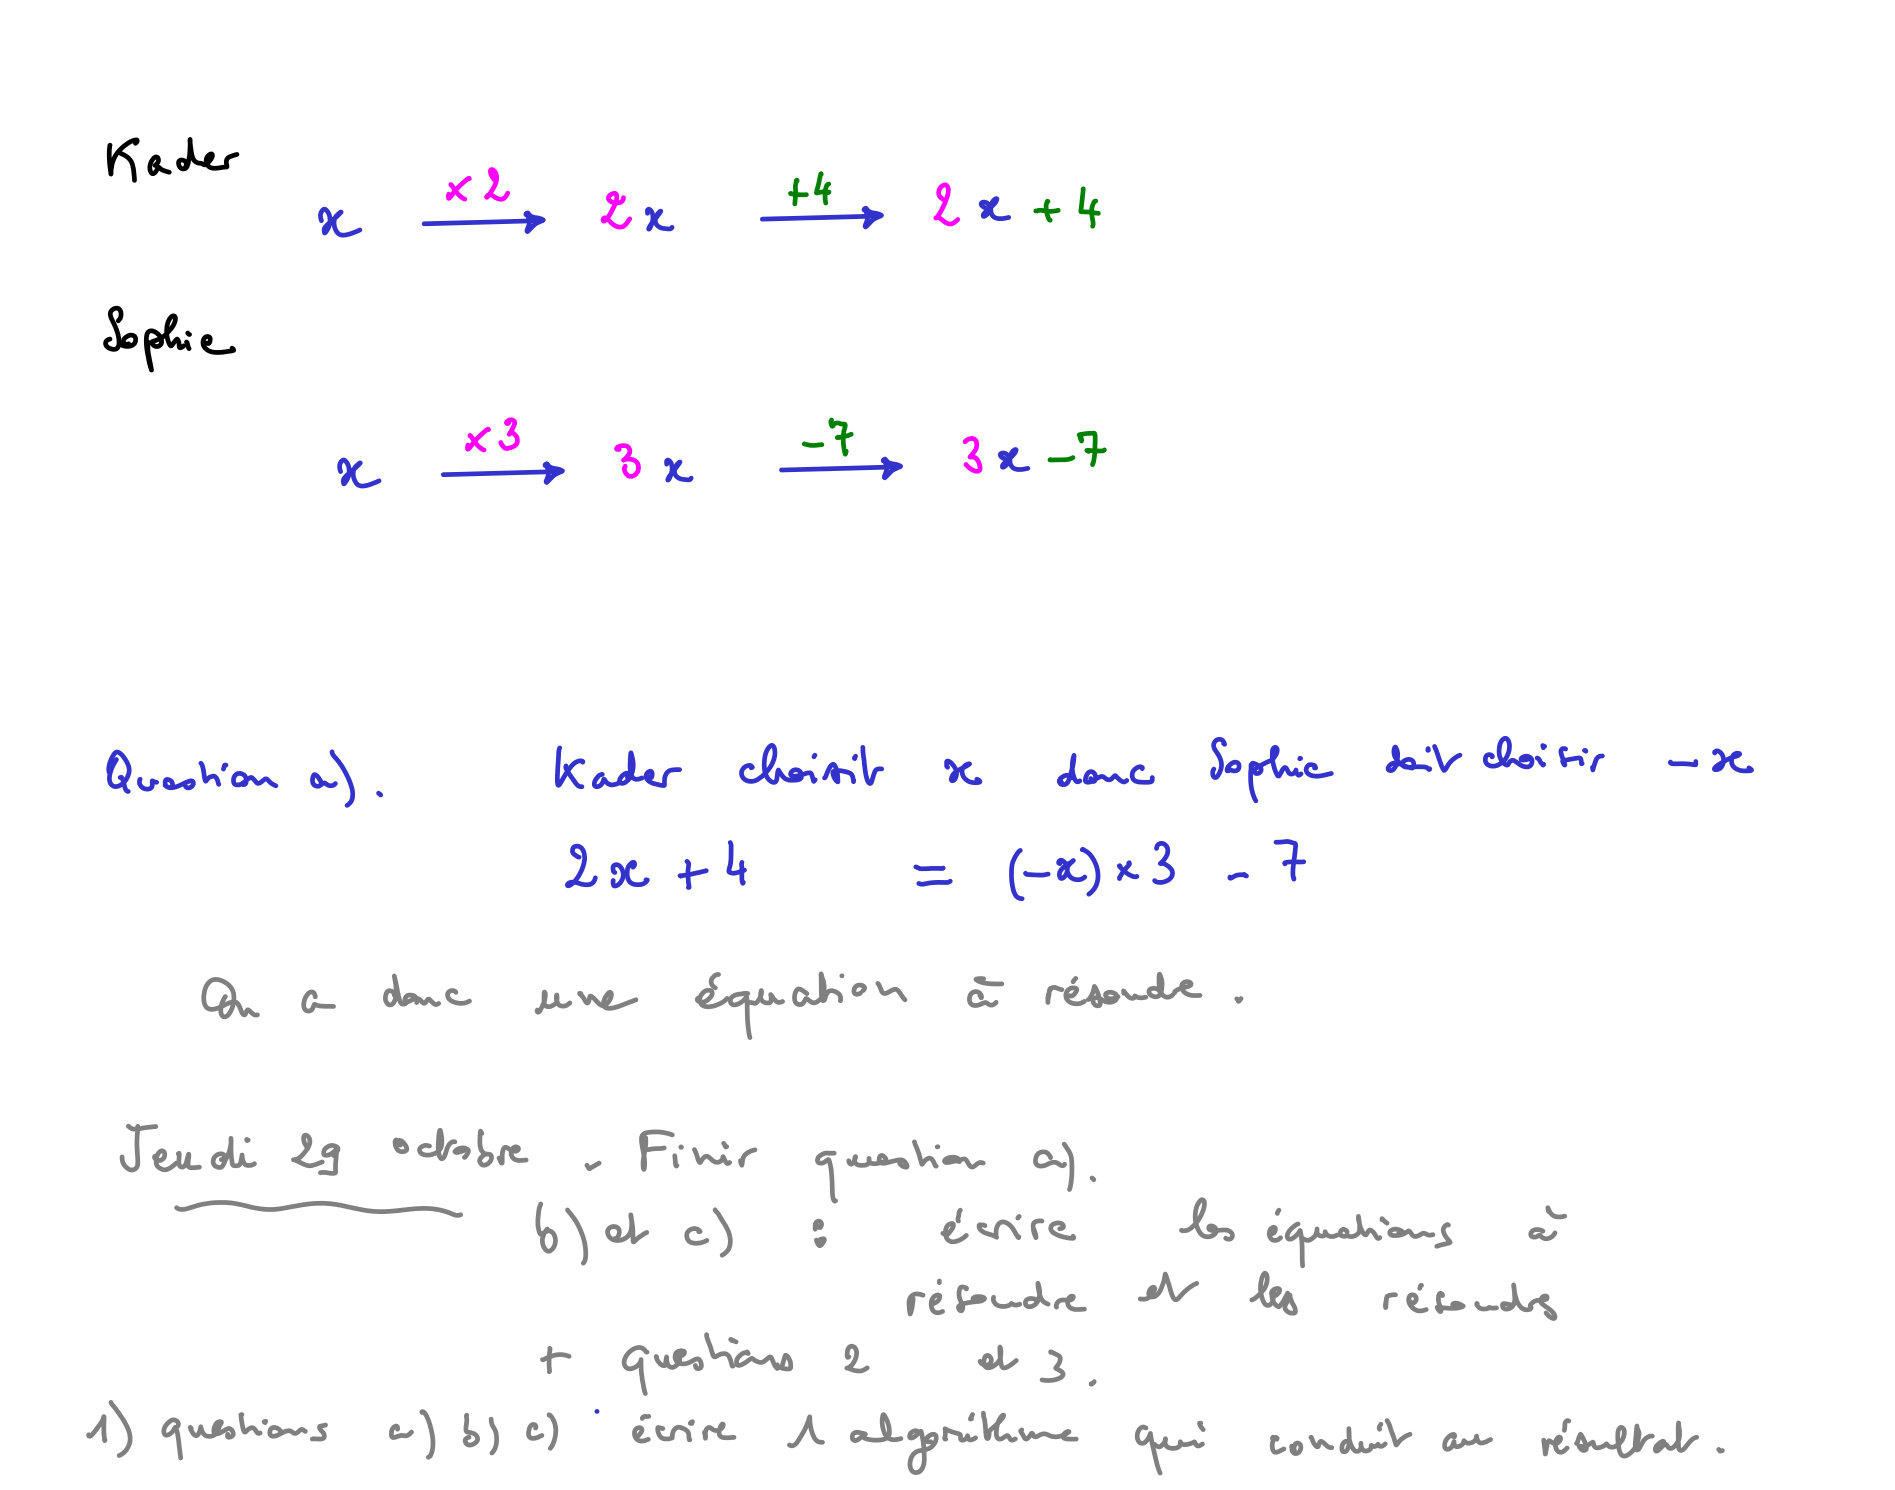 Kader
x ×2 → 2x +4 → 2x + 4
Sophie
x ×3 → 3x -7 → 3x - 7
Question a). Kader choisit x donc Sophie doit choisir -x
2x + 4 = (-x) × 3 - 7
On a donc une équation à résoudre.
Jeudi 29 octobre. Finir question a).
b) et c) : écrire les équations à
résoudre et les résoudre
+ questions 2 et 3.
1) questions a) b) c) écrire 1 algorithme qui conduit au résultat.